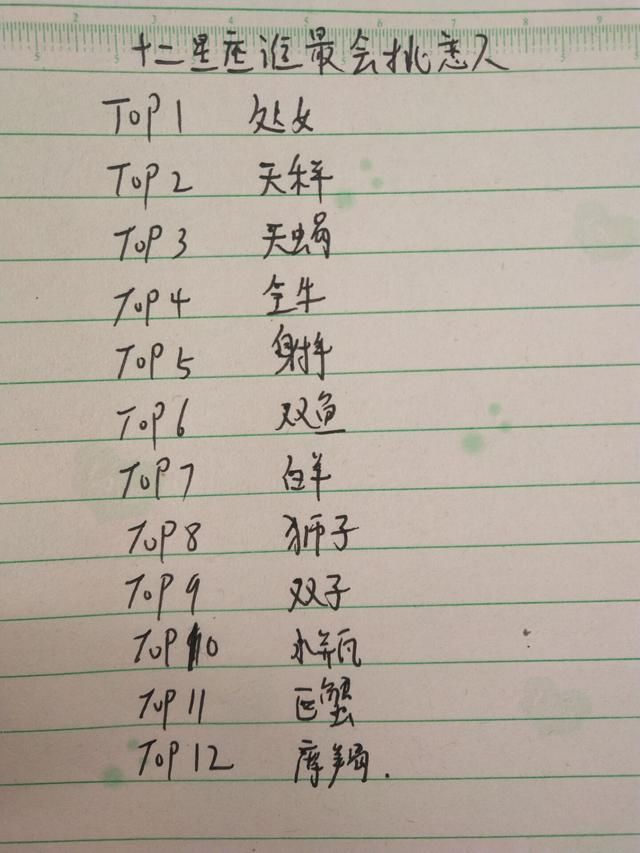 十二星座谁最会挑恋人
TOP 1 处女
TOP 2 天秤
TOP 3 天蝎
TOP 4 金牛
TOP 5 射手
TOP 6 双鱼
TOP 7 白羊
TOP 8 狮子
TOP 9 双子
TOP 10 水瓶
TOP 11 巨蟹
TOP 12 摩羯.